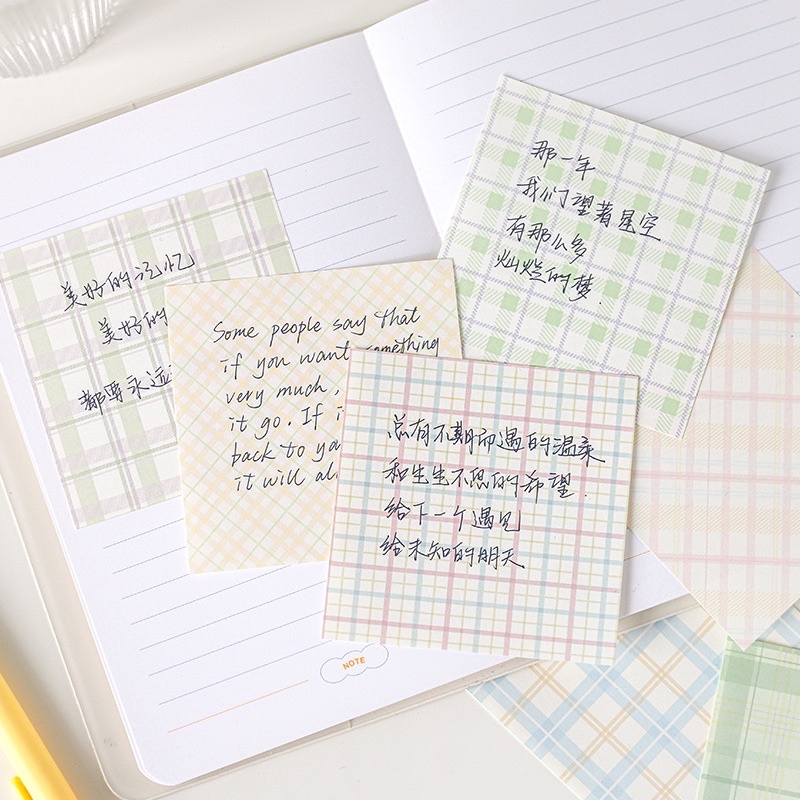 美好的记忆
美好的
都要永远
Some people say that
if you want something
very much,
it go. If
back to
it will
总有不期而遇的温柔
和生生不息的希望.
给下一个遇见
给未知的明天
那一年
我们望着星空
有那么多
灿烂的梦.
NOTE